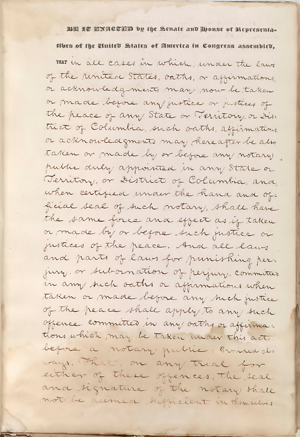 BE IT ENACTED by the Senate and House of Representa-
tives of the United States of America in Congress assembled,
THAT in all cases in which, under the laws
of the United States, oaths, or affirmations,
or acknowledgments may now be taken
or made before any justice or justices of
the peace of any State or Territory, or Dis-
trict of Columbia, such oaths, affirmations
or acknowledgments may hereafter be also
taken or made by or before any notary
public duly appointed in any State or
Territory, or District of Columbia, and,
when certified under the hand and of-
ficial seal of such notary, shall have
the same force and effect as if taken
or made by or before such justice or
justices of the peace. And all laws
and parts of laws for punishing per-
jury, or subornation of perjury, committed
in any such oaths or affirmations when
taken or made before any such justice
of the peace shall apply to any such
offence committed in any oaths or affirma-
tions which may be taken under this act
before a notary public. Provided al-
ways, That on any trial for
either of these offences, the seal
and signature of the notary shall
not be deemed sufficient in themselves